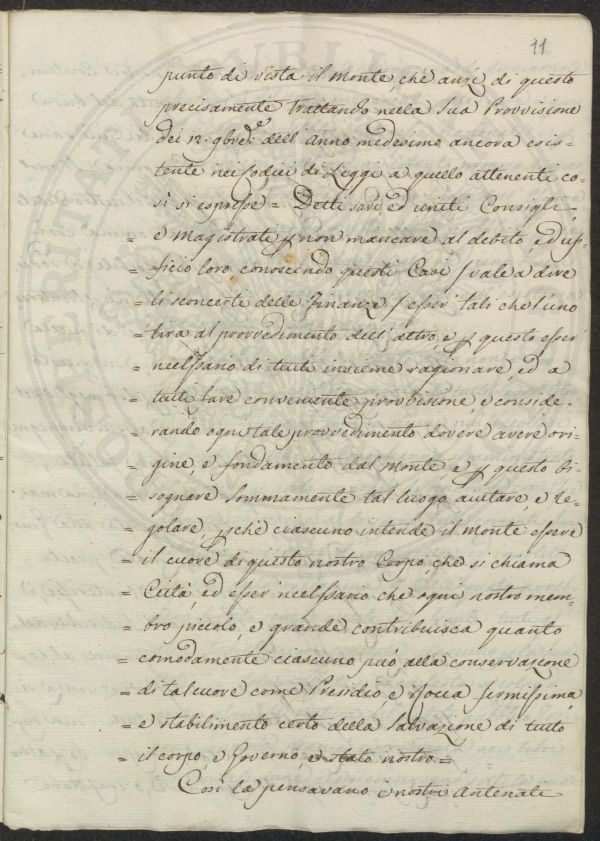 11
punto di vista il Monte, che anzi di questo
precisamente Trattando nella Sua Provvisione
dei 12. 9bre dell' Anno medesimo ancora esis-
tente nei Codici di Leggi a quello attenenti co-
sì si espresse = Detti savi ed uniti Consigli,
= e Magistrati p non mancare al debito, ed uf-
= ficio loro conoscendo questi Casi / vale a dire
li sconcerti delle Finanze / esser tali che l'uno
= tira al provvedimento dell' altro, e p questo esser
= necessario di tutti insieme ragionare, ed a
= tutti fare conveniente provvisione, e conside-
= rando ogni tale provvedimento dovere avere ori-
= gine, e fondamento dal Monte, e p questo bi-
= sognare sommamente tal luogo aiutare, e re-
= golare, pchè ciascuno intende il Monte essere
= il cuore di questo nostro Corpo, che si chiama
= Città, ed esser necessario che ogni nostro mem-
= bro piccolo, e grande contribuisca quanto
= comodamente ciascuno può alla conservazione
= di tal cuore come Presidio, e Rocca fermissima,
= e stabilimento certo della Salvazione di tutto
= il corpo, e Governo, e stato nostro =
Così la pensavano i nostri Antenati